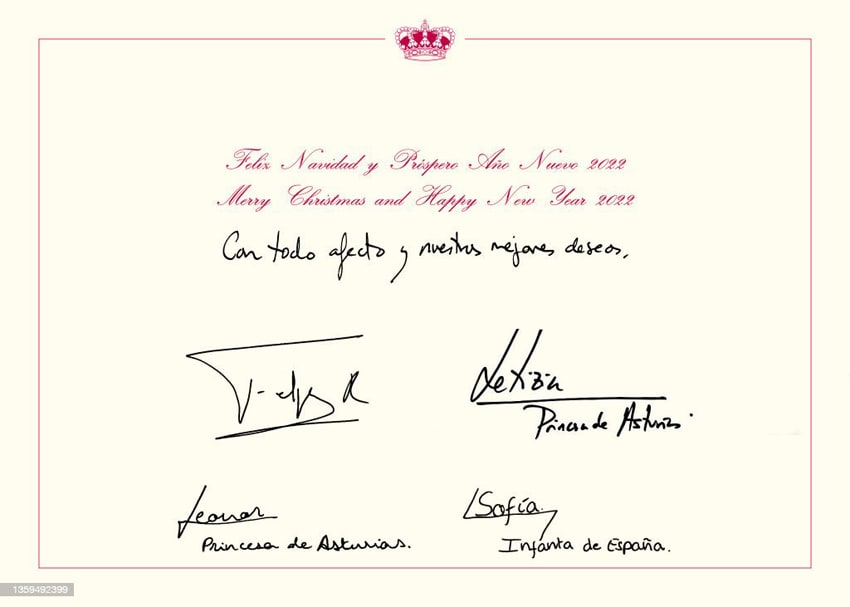 Feliz Navidad y Próspero Año Nuevo 2022
Merry Christmas and Happy New Year 2022
Con todo afecto y nuestros mejores deseos,
Felipe R
Letizia
Princesa de Asturias
Leonor
Princesa de Asturias.
Sofía
Infanta de España.
1359492399